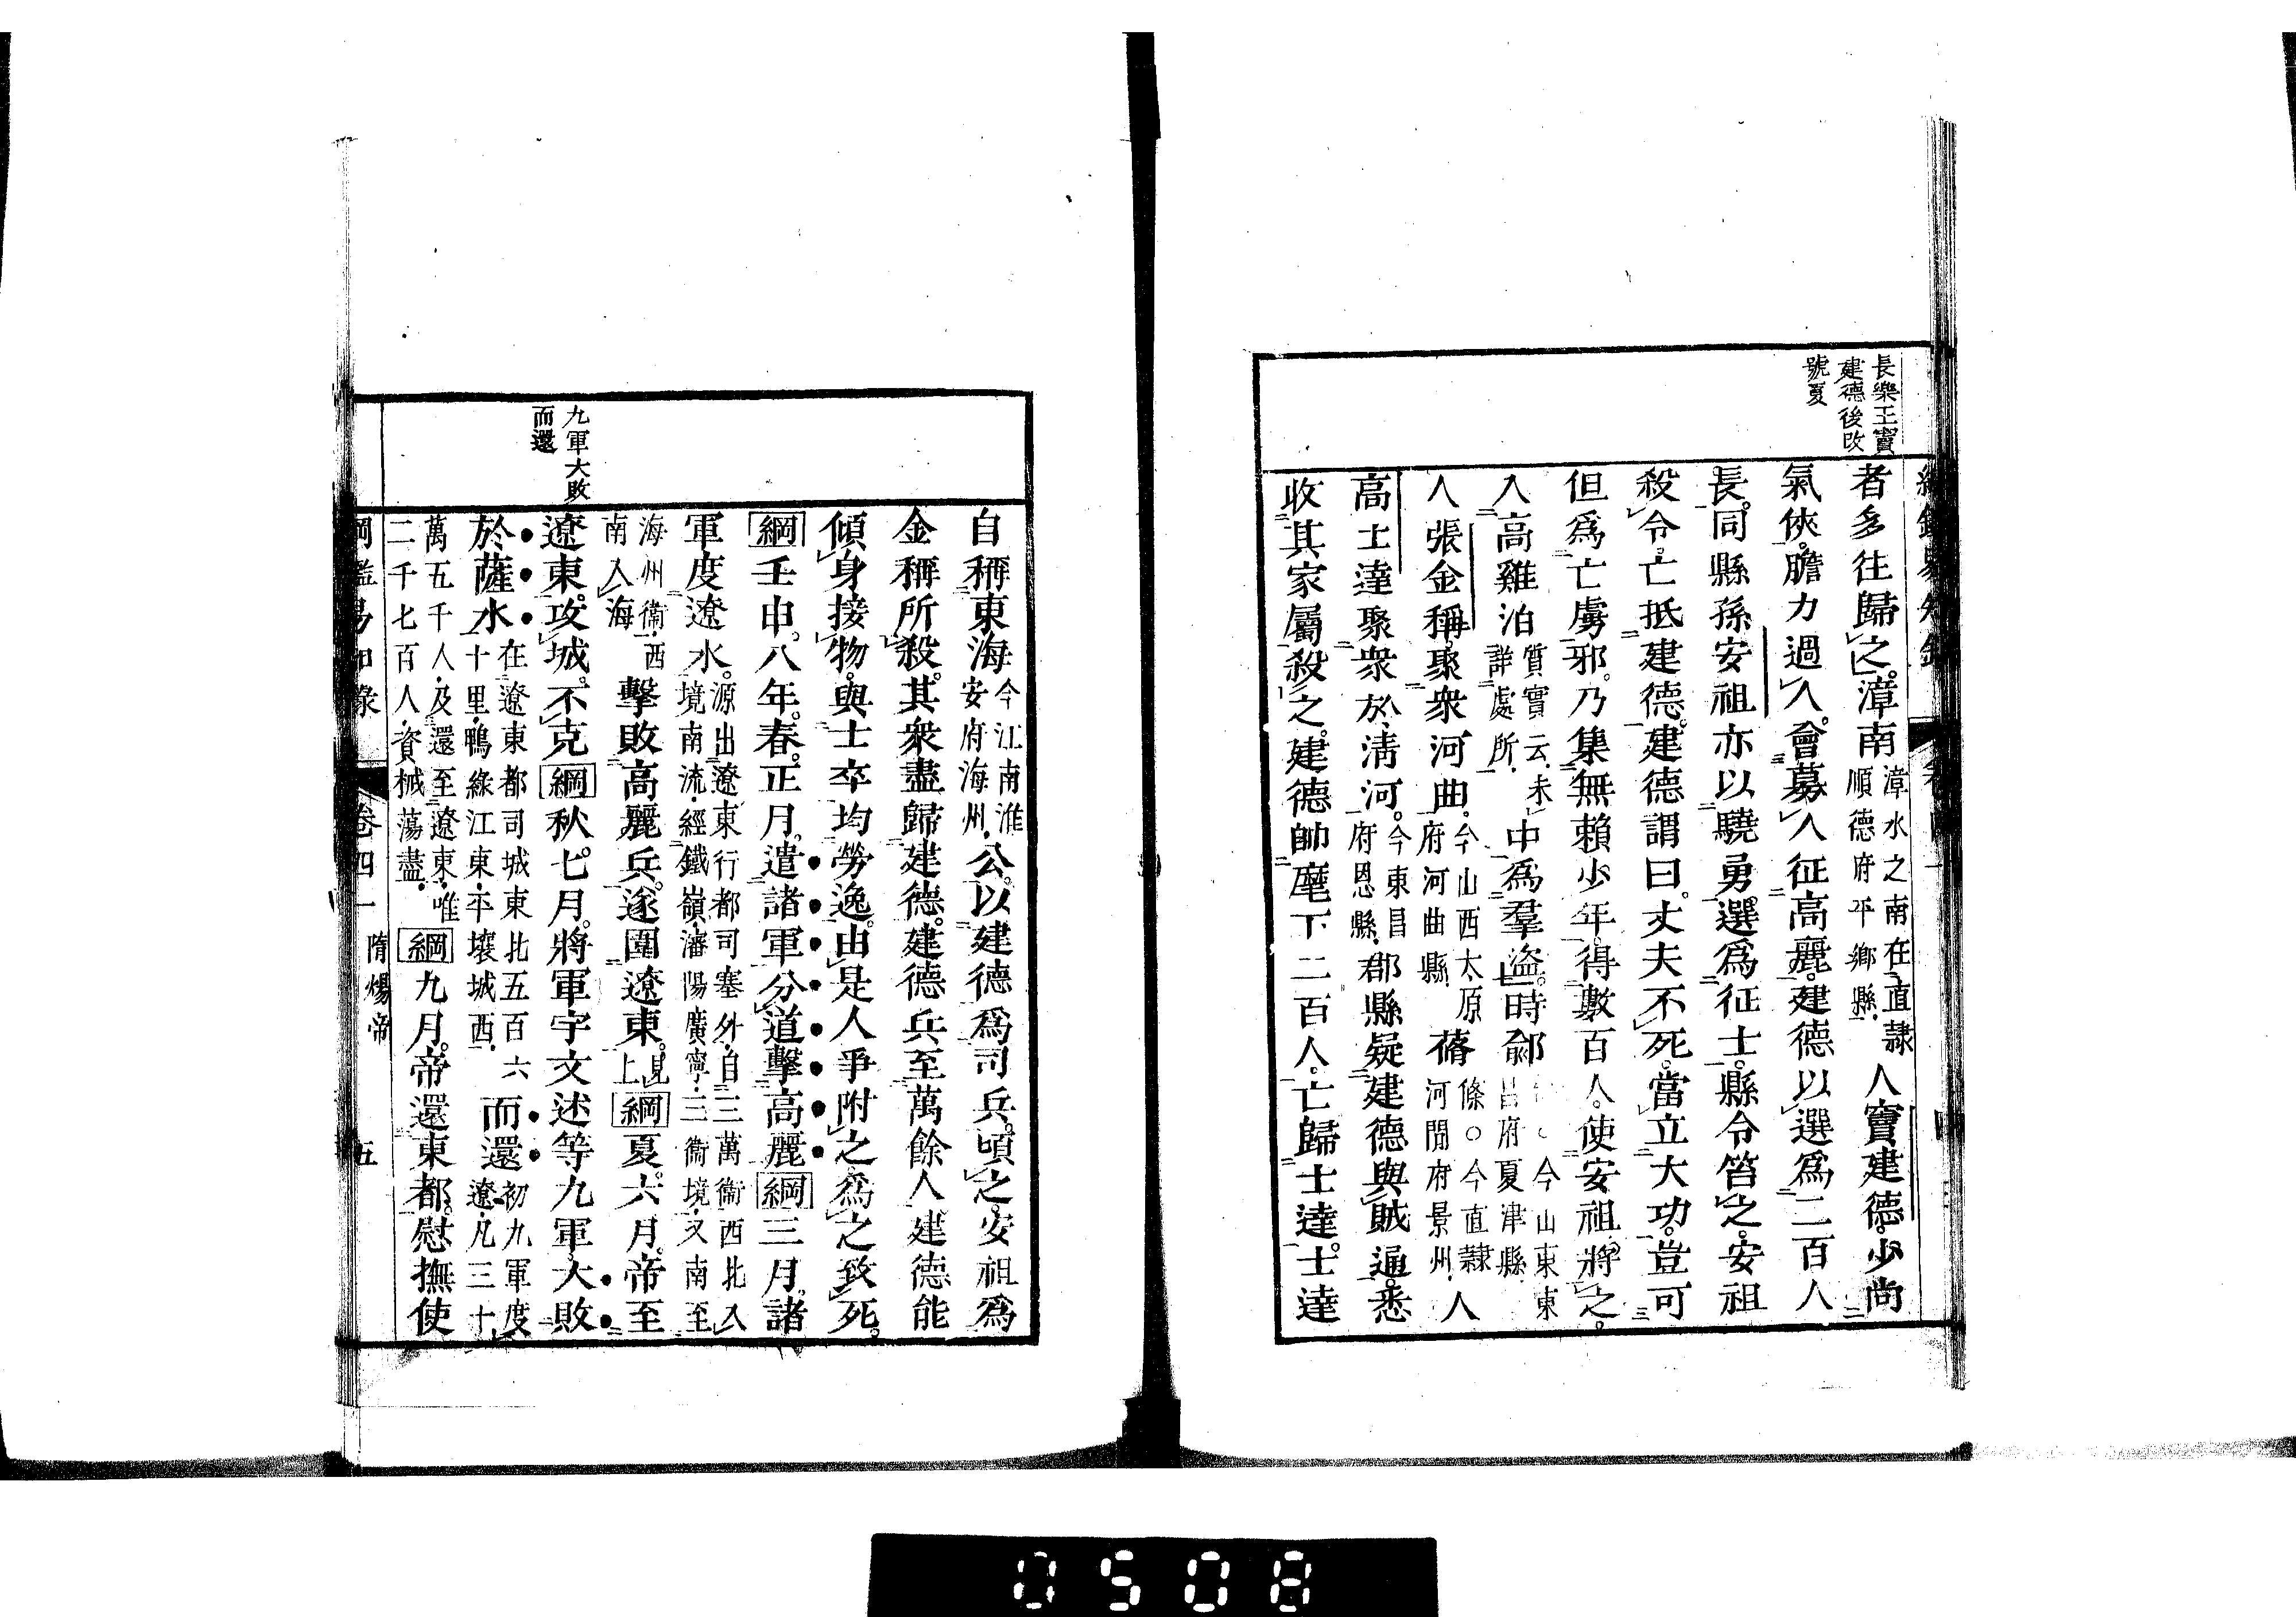 長樂王竇
建德後改
號夏
者多往歸之。漳南漳水之南在直隷順德府平鄉縣人竇建德。少尚
氣俠。膽力過人。會募人征高麗。建德以選爲二百人
長。同縣孫安祖亦以驍勇選爲征士。縣令笞之。安祖
殺令。亡抵建德。建德謂曰。丈夫不死。當立大功。豈可
但爲亡虜邪。乃集無賴少年。得數百人。使安祖將之。
入高雞泊質實云未詳處所中爲羣盜。時鄃今山東東昌府夏津縣
人張金稱。聚衆河曲。今山西太原府河曲縣蓨條○今直隷河閒府景州人
高士達聚衆於淸河。今東昌府恩縣郡縣疑建德與賊通。悉
收其家屬殺之。建德帥麾下二百人。亡歸士達。士達
九軍大敗
而還
自稱東海今江南淮安府海州公。以建德爲司兵。頃之。安祖爲
金稱所殺。其衆盡歸建德。建德兵至萬餘人建德能
傾身接物。與士卒均勞逸。由是人爭附之爲之致死。
綱壬申。八年。春。正月。遣諸軍分道擊高麗綱三月。諸
軍度遼水。源出遼東行都司塞外自三萬衞西北入境南流經鐵嶺瀋陽廣寧三衞境又南至
海州衞西南入海擊敗高麗兵。遂圍遼東。見上綱夏。六月。帝至
遼東。攻城。不克綱秋。七月。將軍宇文述等九軍。大敗
於薩水在遼東都司城東北五百六十里鴨綠江東平壤城西而還初九軍度遼凡三十
萬五千人及還至遼東唯二千七百人資械蕩盡綱九月。帝還東都。慰撫使
綱鑑易知錄 卷四一 隋煬帝 五
0508